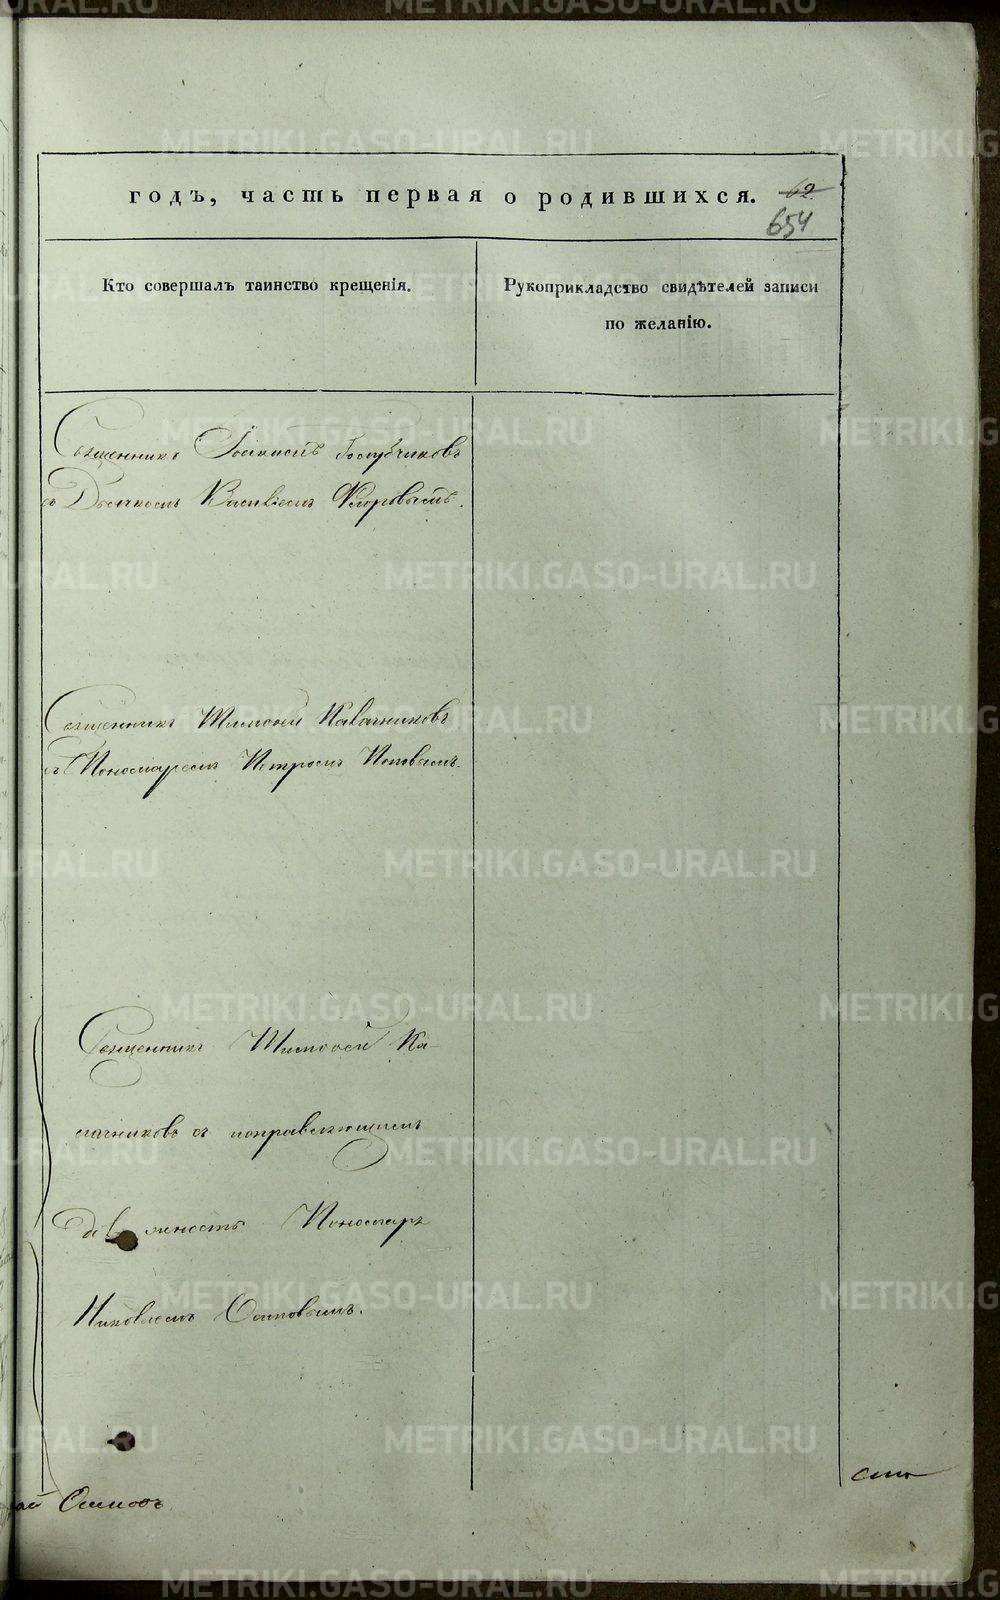 годъ, часть первая о родившихся. 62
654
Кто совершалъ таинство крещенія.
Рукоприкладство свидѣтелей записи
по желанію.
Священникъ Іоакимъ Голубчиковъ
съ Дьячкомъ Василіемъ Ѳедоровымъ.
Священникъ Тимоѳей Калачниковъ
съ Пономаремъ Петромъ Поповымъ.
Священникъ Тимоѳей Ка-
лачниковъ съ поправляющимъ
должность Пономаря
Николаемъ Осиповымъ.
Осиповъ
METRIKI.GASO-URAL.RU